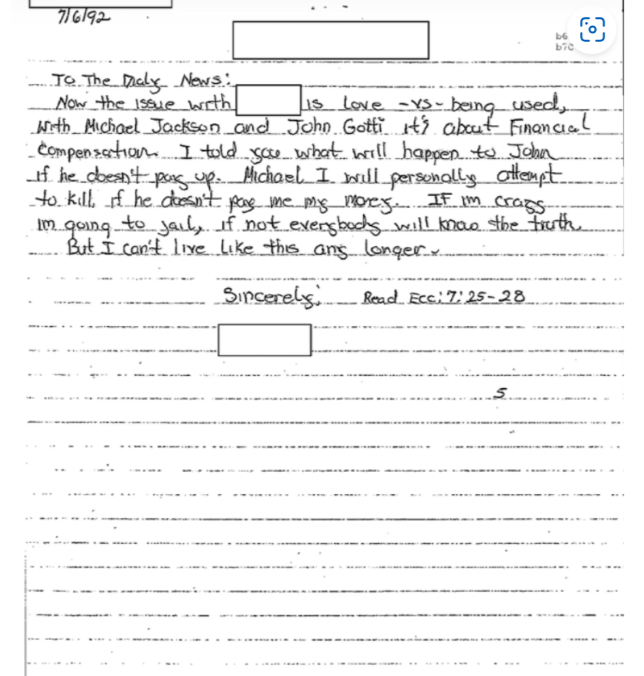 7/6/92
b6
b7C
To The Daily News:
Now the issue with is love -vs- being used,
With Michael Jackson and John Gotti it's about Financial
Compensation. I told you what will happen to John
if he doesn't pay up. Michael I will personally attempt
to kill, if he doesn't pay me my money. If im crazy
im going to jail, if not everybody will know the truth.
But I can't live like this any longer.
Sincerely, Read Ecc: 7: 25-28
5